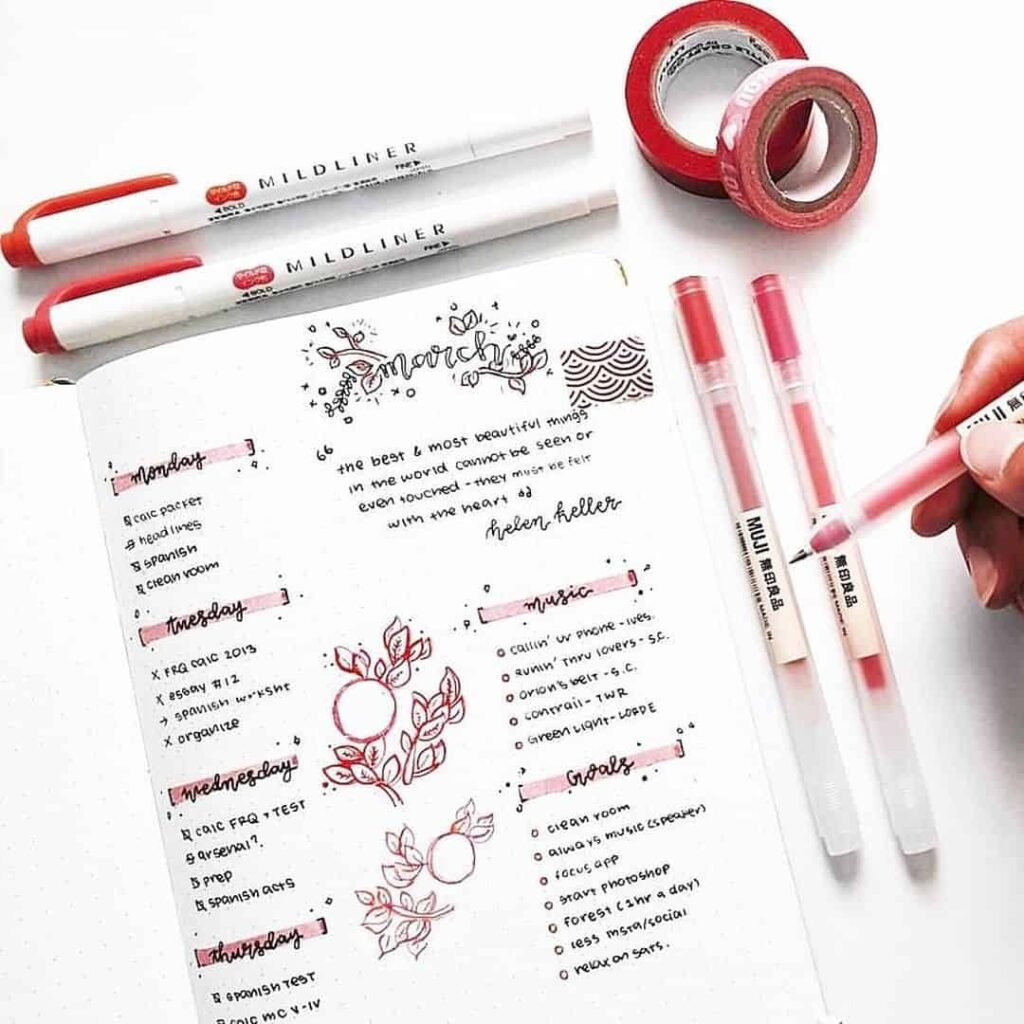 MILDLINER
BOLD
FINE
MILDLINER
BOLD
FINE
march
" the best & most beautiful things
in the world cannot be seen or
even touched - they must be felt
with the heart "
helen keller
monday
calc packet
headlines
spanish
clean room
tuesday
X FRQ calc 2013
X essay #12
→ spanish worksht
X organize
wednesday
calc FRQ + TEST
arsenal?
prep
spanish acts
thursday
spanish TEST
calc mc V-IV
music
callin' ur phone - ives.
runin' thru lovers - S.C.
orion's belt - S.C.
contrail - TWR
Green Light - LORDE
Goals
clean room
always music (speaker)
focus app
start photoshop
forest (2hr a day)
less insta/social
relax on sats.
MUJI 無印良品
無印良品
MUJI